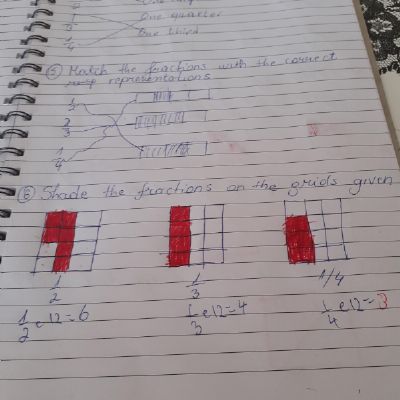 One quarter
1/4 One third
⑤ Match the fractions with the correct
representations
1/2
2/3
1/4
⑥ Shade the fractions on the grids given
1/2 1/3 1/4
1/2 e12=6 1/3 e12=4 1/4 e12=3